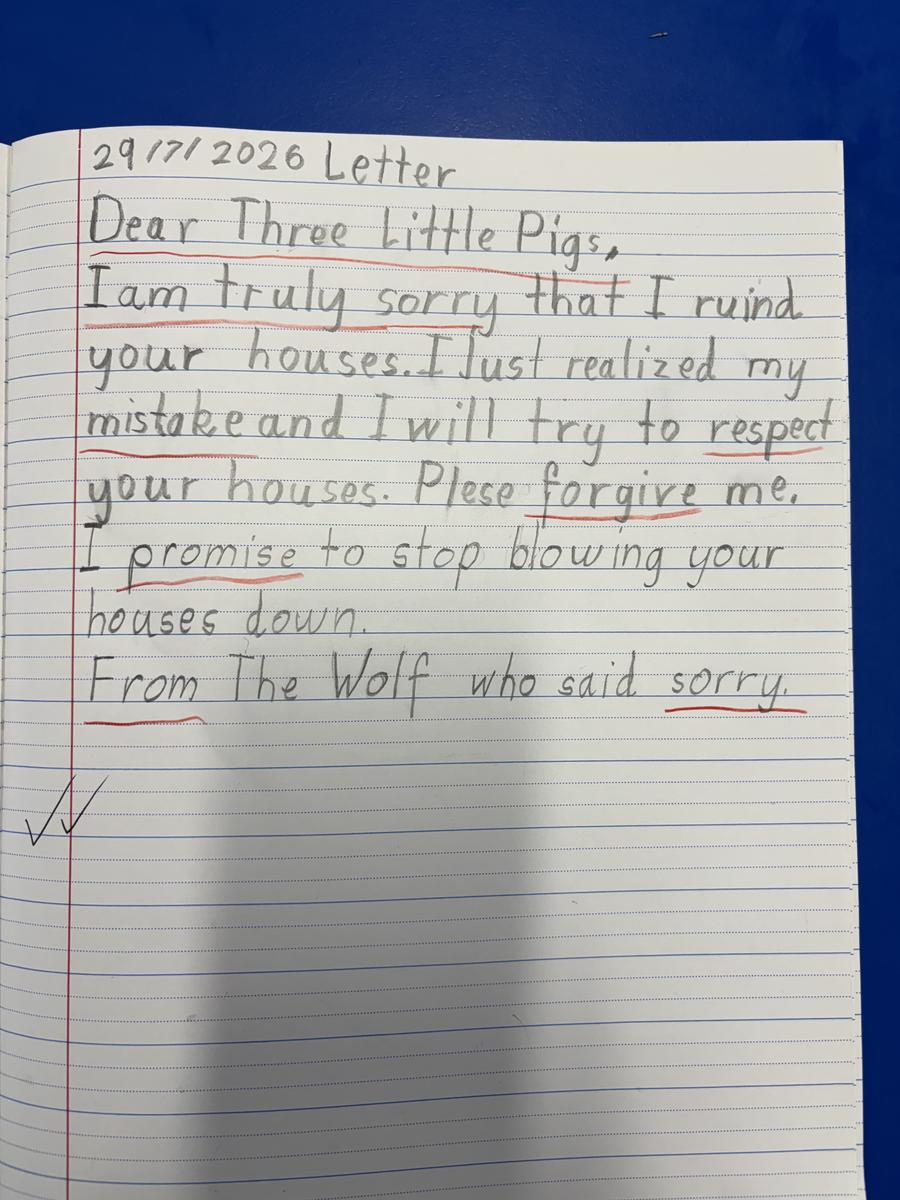 29/7/2026 Letter
Dear Three Little Pigs,
I am truly sorry that I ruind
your houses. I Just realized my
mistake and I will try to respect
your houses. Plese forgive me.
I promise to stop blowing your
houses down.
From The Wolf who said sorry.